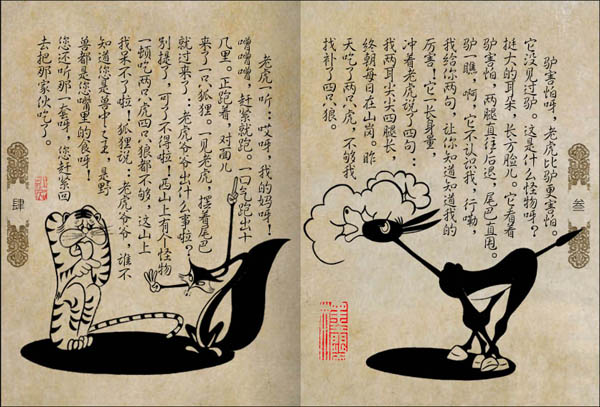 驴害怕呀，老虎比驴更害怕。
它没见过驴。这是什么怪物呀？
挺大的耳朵，长方脸儿。它看着
驴害怕，两腿直往后退，尾巴直甩。
驴一瞧，啊，它不认识我，行嘞，
我给你两句，让你知道知道我的
厉害！它一长身量，
冲着老虎说了四句：
我两耳尖尖四腿长，
终朝每日在山岗。昨
天吃了两只虎，不够我
找补了四只狼。
叁
老虎一听：哎呀，我的妈呀！
噌噌噌，赶紧就跑。一口气跑出十
几里。正跑着，对面儿
来了一只狐狸。一见老虎，摆着尾巴
就过来了：老虎爷爷出什么事啦？
别提了，可了不得啦！西山上有个怪物
一顿吃两只虎四只狼都不够，这山上
我呆不了啦！狐狸说：老虎爷爷，谁不
知道您是兽中之王，是野
兽都是您嘴里的食呀！
您还听那一套呀，您赶紧回
去把那家伙吃了。
肆